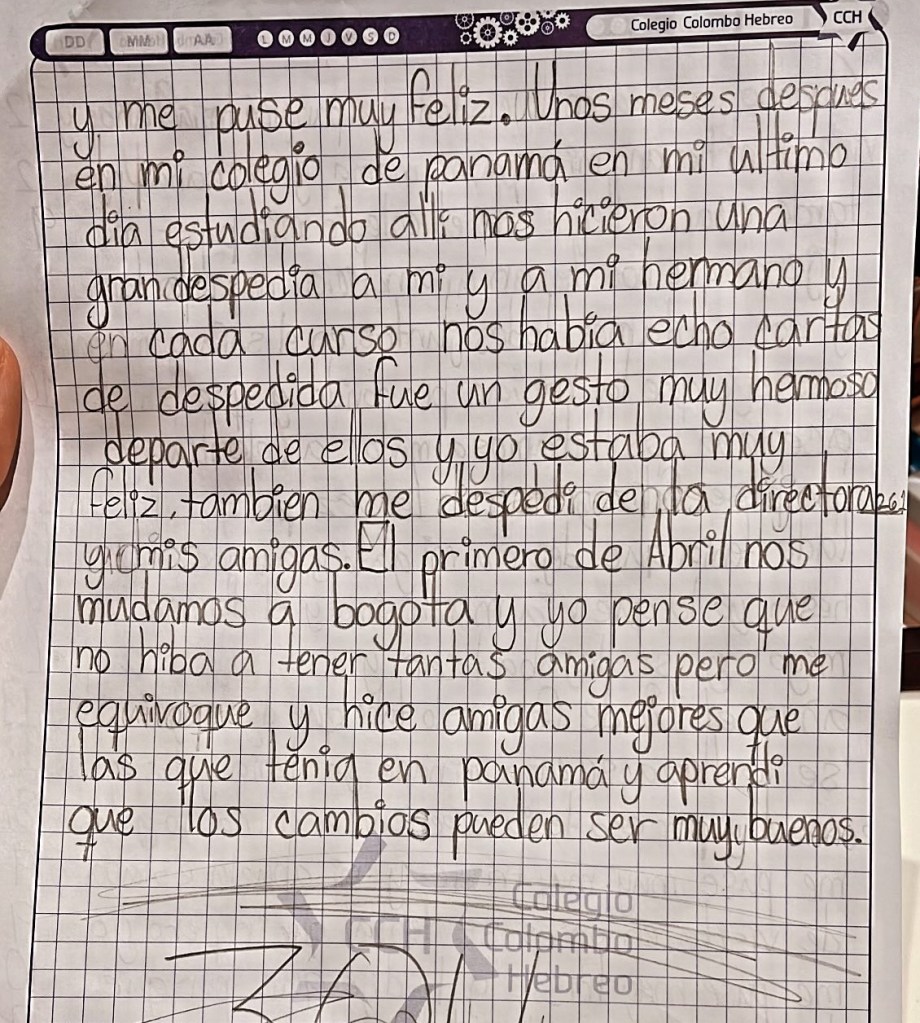 DD MM AA L M M J V S D Colegio Colombo Hebreo CCH
y me puse muy feliz. Unos meses despues
en mi colegio de panamá en mi ultimo
dia estudiando alli nos hicieron una
gran despedia a mi y a mi hermano y
en cada curso nos habia echo cartas
de despedida fue un gesto muy hermoso
departe de ellos y yo estaba muy
feliz, tambien me despedi de la directora
y mis amigas. El primero de Abril nos
mudamos a bogota y yo pense que
no hiba a tener tantas amigas pero me
equivoque y hice amigas mejores que
las que tenia en panamá y aprendi
que los cambios pueden ser muy buenos.
Colegio
CCH Colombo
Hebreo